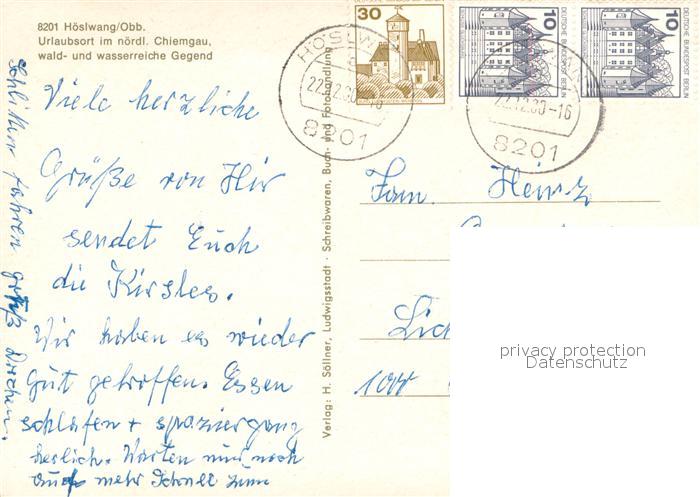 8201 Höslwang/Obb.
Urlaubsort im nördl. Chiemgau,
wald- und wasserreiche Gegend
Viele herzliche
Grüße von Hir
sendet Euch
die Kirsles.
Wir haben es wieder
Gut getroffen. Essen
schlafen + spaziergang
herlich. Warten nur noch
auf mehr Schnee zum
Schlitten fahren gruß Drachen.
Verlag: H. Söllner, Ludwigsstadt · Schreibwaren, Buch- und Fotohandlung
30
10
DEUTSCHE BUNDESPOST BERLIN
10
DEUTSCHE BUNDESPOST BERLIN
HÖSLW
22.12.80-16
8201
22.12.80-16
8201
Fam. Heinz
100
privacy protection
Datenschutz